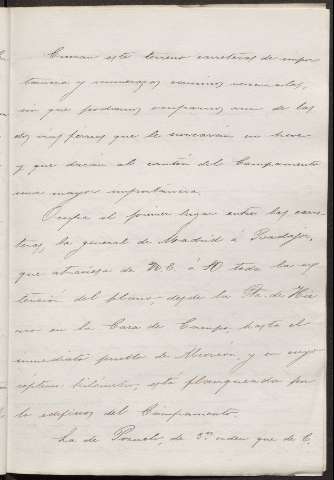 Cruzan este terreno carreteras de impor
tancia y numerosos caminos vecinales,
sin que podamos ocuparnos aun de las
dos vias ferreas que le surcarán en breve
y que darán al cantón del Campamento
una mayor importancia.
Ocupa el primer lugar entre las carre
teras, la general de Madrid á Badajoz,
que atraviesa de N.E. á toda la ex
tensión del plano, desde la Pta. de Hie
rro en la Casa de Campo, hasta el
inmediato pueblo de Alcorcón, y en cuyo
septimo kilómetro, está flanqueada por
los edificios del Campamento.
La de Pozuelo, de 3er orden que de C.